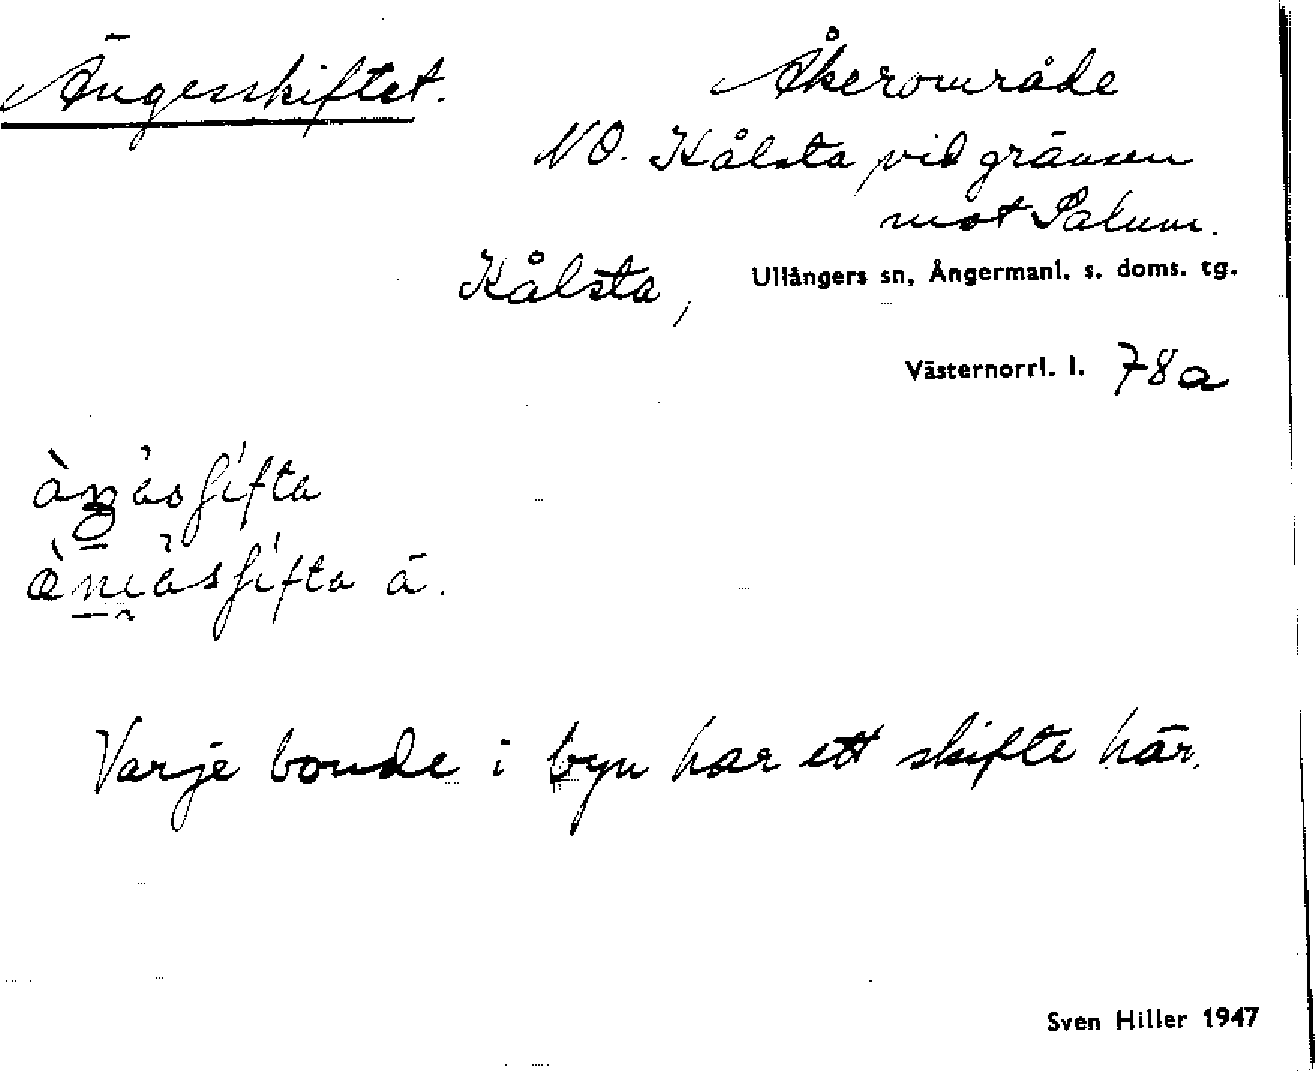 Ängesskiftet.
Åkerområde
NO. Kålsta vid gränsen
mot Salum.
Kålsta,
Ullångers sn, Ångermanl. s. doms. tg.
Västernorrl. l. 78a
Varje bonde i byn har ett skifte här.
Sven Hiller 1947